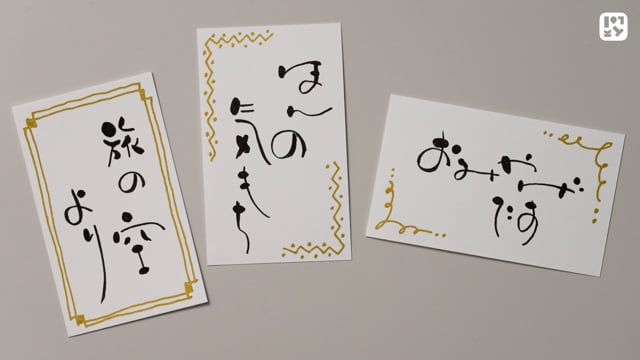 旅の空
より
ほんの
気もち
おみやげ
です